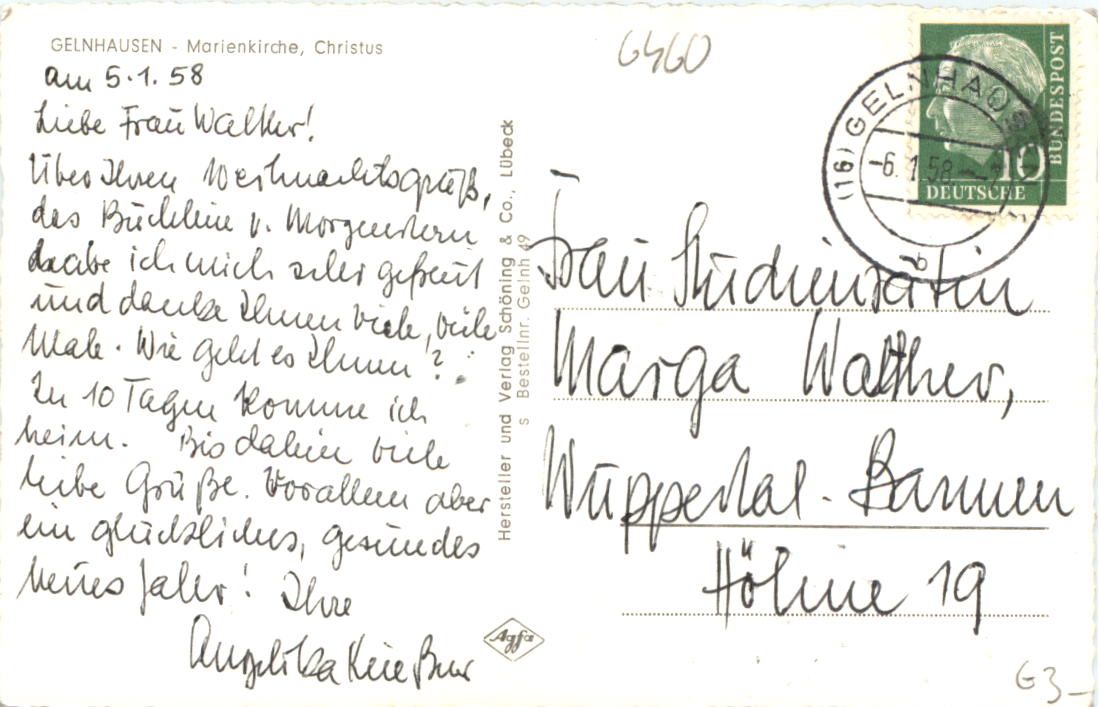 GELNHAUSEN - Marienkirche, Christus
am 5.1.58
Liebe Frau Walther!
Über Ihren Weihnachtsgruß,
das Büchlein v. Morgenstern
habe ich mich sehr gefreut
und danke Ihnen viele, viele
Male. Wie geht es Ihnen?
In 10 Tagen komme ich
heim. Bis dahin viele
liebe Grüße. Vor allem aber
ein glückliches, gesundes
neues Jahr! Ihre
Angelika
Hersteller und Verlag Schöning & Co., Lübeck
S Bestellnr. Gelnh 49
Agfa
6460
(16) GELNHAUSEN
-6.1.58
DEUTSCHE
BUNDESPOST
10
Frau Studienrätin
Marga Walther,
Wuppertal-Barmen
Höhne 19
63-